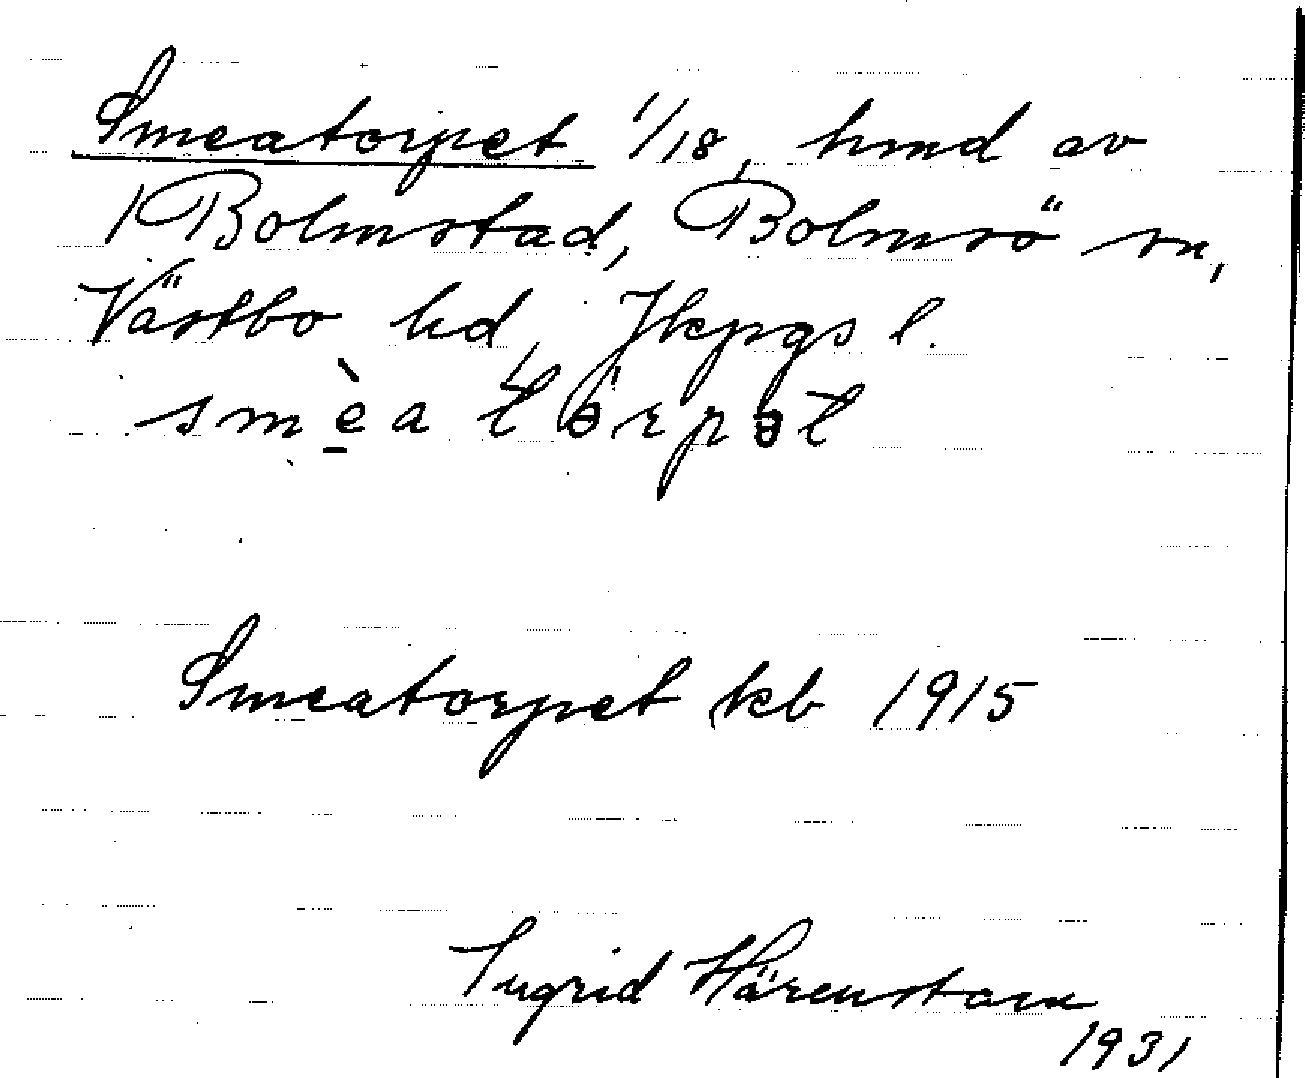 Smeatorpet 1/18, hmd av
Bolmstad, Bolmsö sn,
Västbo hd, Jkpgs l.
smèa
Smeatorpet kb 1915
Ingrid Härenstam
1931